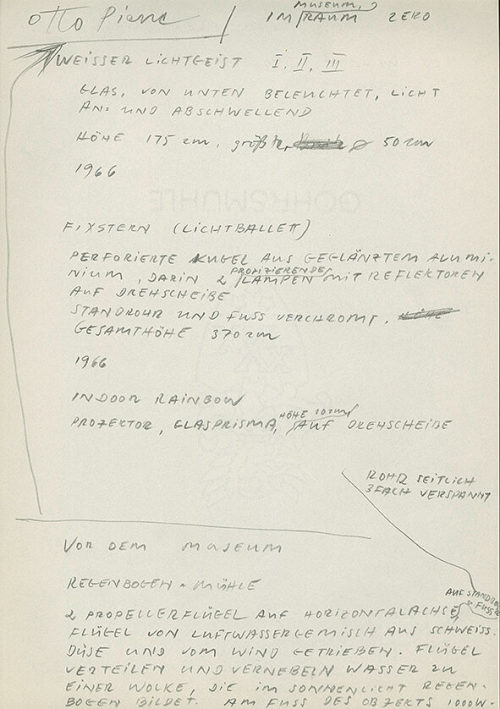 Otto Piene
MUSEUM,
IM RAUM ZERO
WEISSER LICHTGEIST I, II, III
GLAS, VON UNTEN BELEUCHTET, LICHT
AN- UND ABSCHWELLEND
HÖHE 175 cm, größt, ø 50 cm
1966
GOHRSMÜHLE
FIXSTERN (LICHTBALLETT)
PERFORIERTE KUGEL AUS GEGLÄNZTEM ALUMI-
NIUM, DARIN 2 PROJIZIERENDE LAMPEN MIT REFLEKTOREN
AUF DREHSCHEIBE
STANDROHR UND FUSS VERCHROMT,
GESAMTHÖHE 370 cm
1966
INDOOR RAINBOW
PROJEKTOR, GLASPRISMA, HÖHE 20 cm, AUF DREHSCHEIBE
ROHR SEITLICH
3FACH VERSPANNT
VOR DEM MUSEUM
REGENBOGEN-MÜHLE
AUF STANDROHR
+ FUSS
2 PROPELLERFLÜGEL AUF HORIZONTALACHSE,
FLÜGEL VON LUFTWASSERGEMISCH AUS SCHWEISS-
DÜSE UND VOM WIND GETRIEBEN. FLÜGEL
VERTEILEN UND VERNEBELN WASSER ZU
EINER WOLKE, DIE IM SONNENLICHT REGEN-
BOGEN BILDET. AM FUSS DES OBJEKTS 1000W-